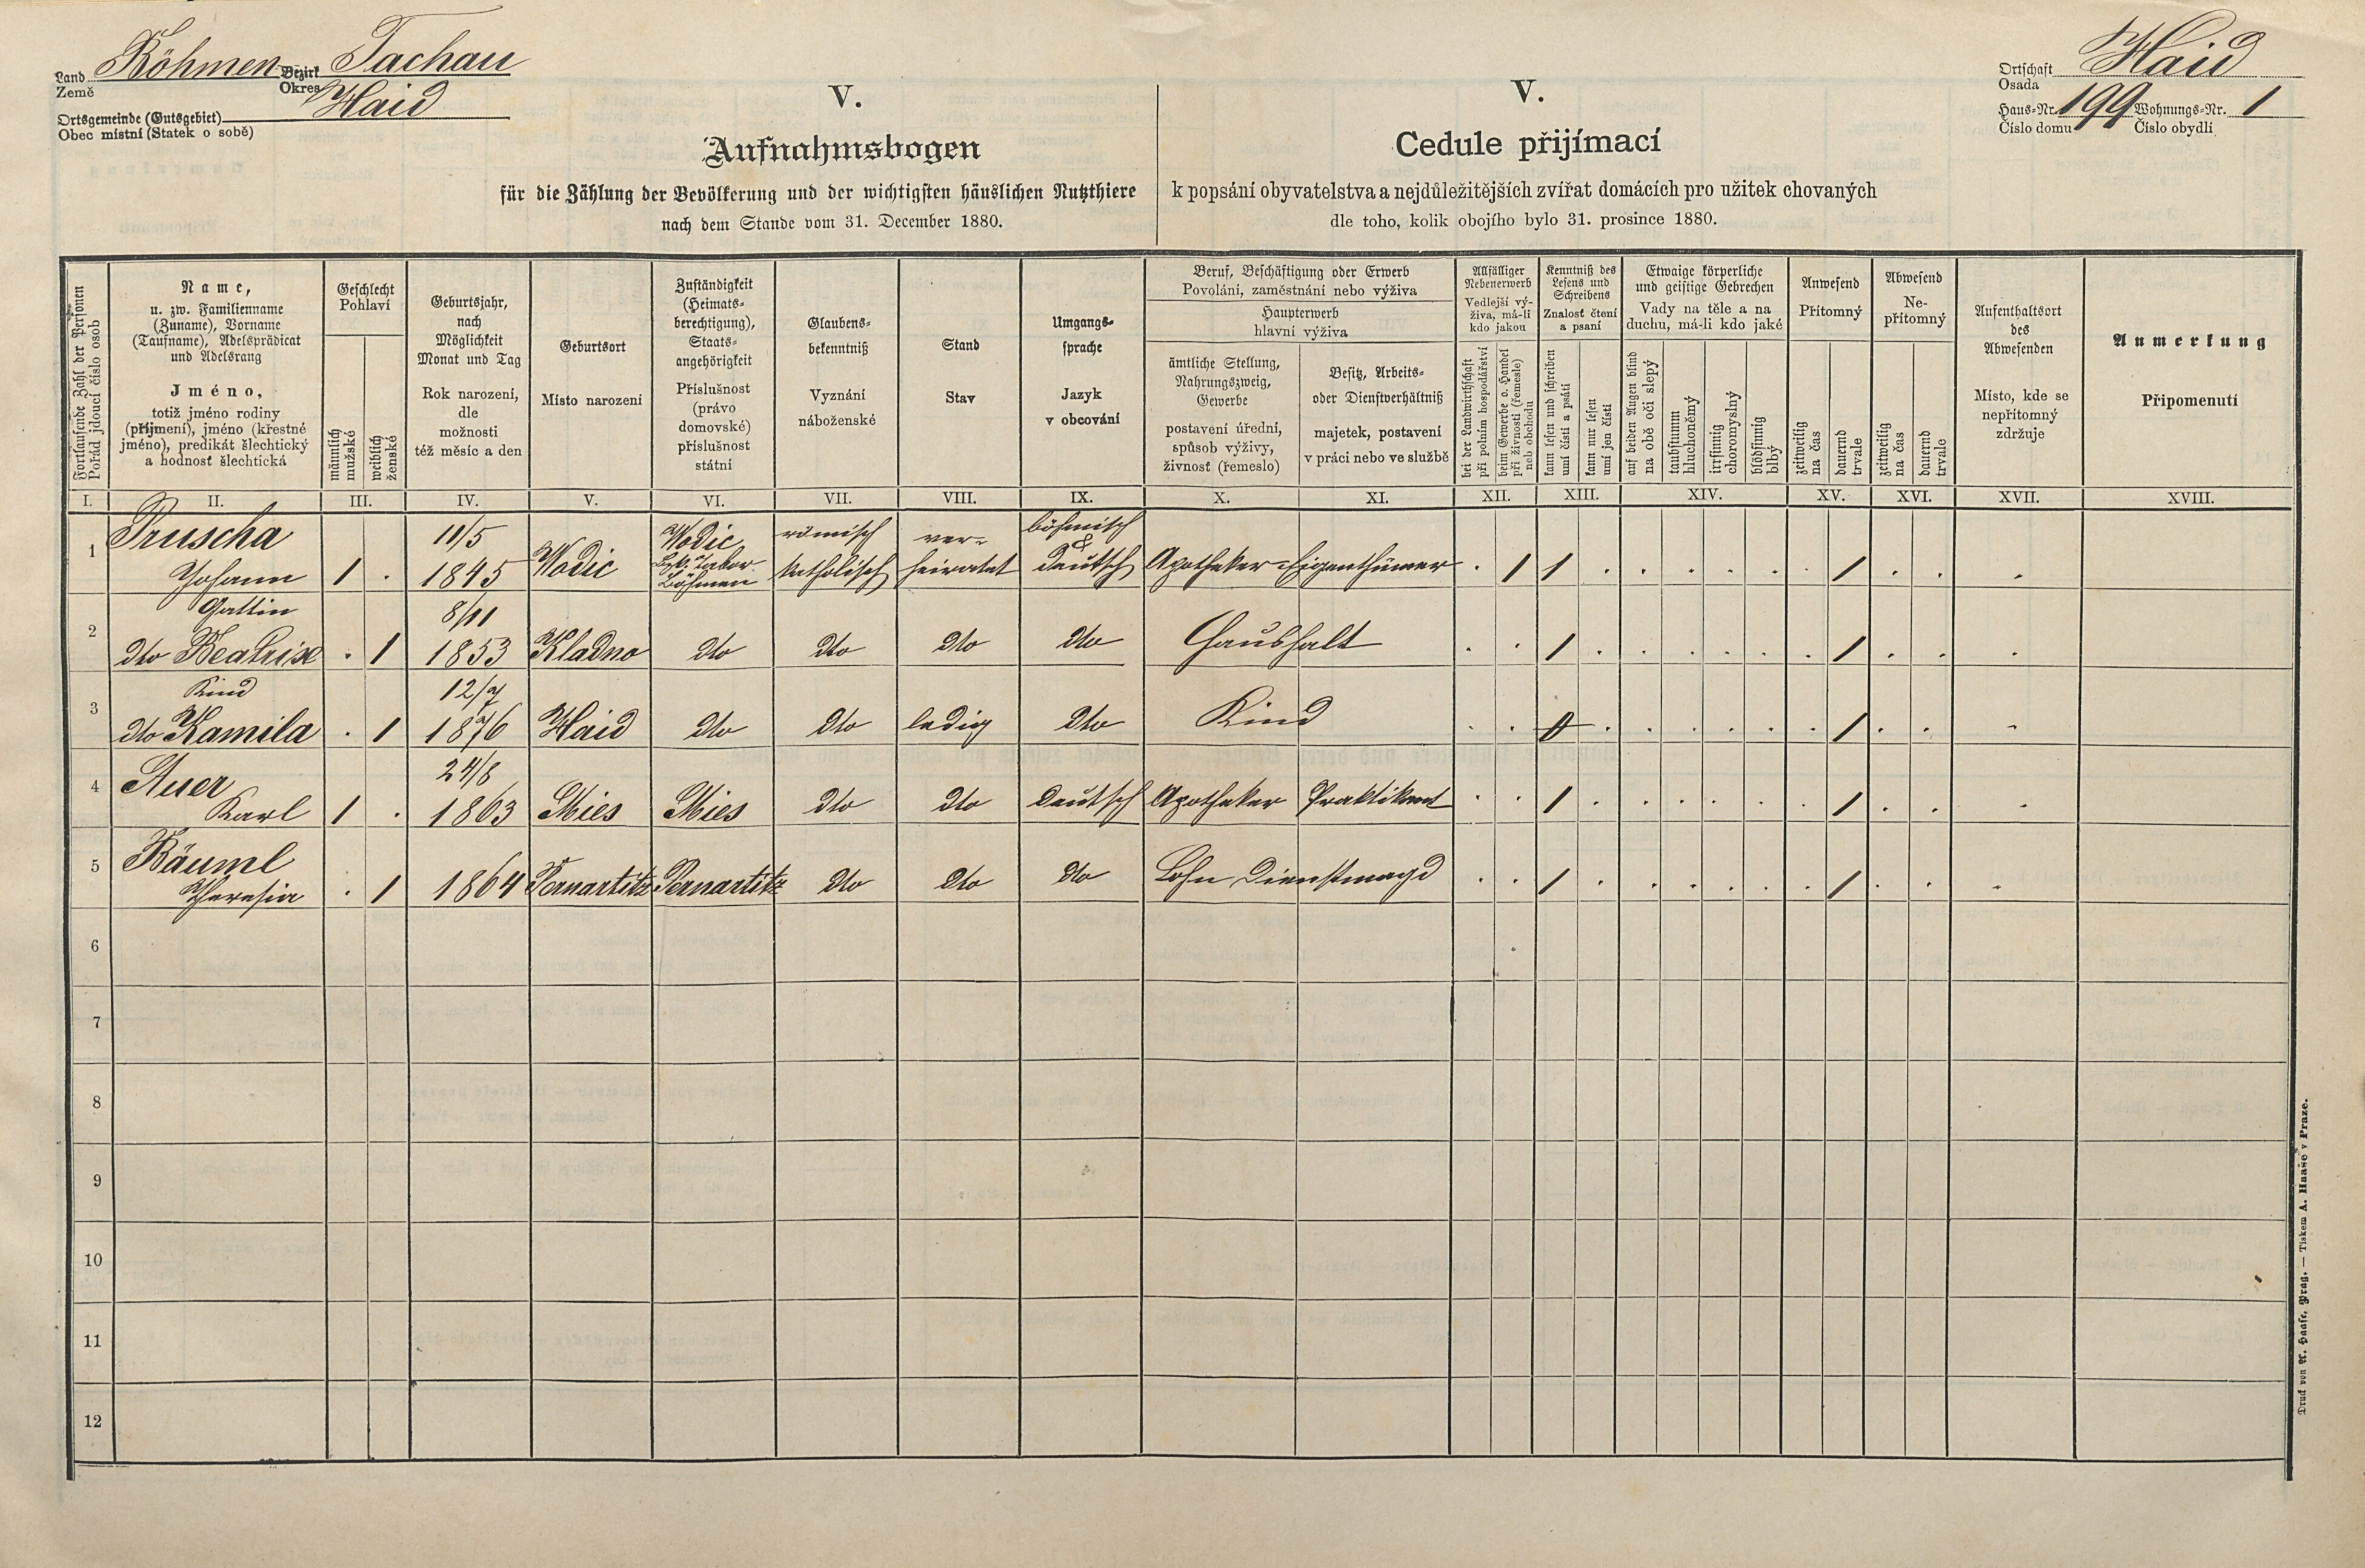 Land Böhmen Bezirk Tachau
Země Okres
Ortsgemeinde (Gutsgebiet) Haid
Obec místní (Statek o sobě)
Ortschaft Haid
Osada
Haus-Nr. 199 Wohnungs-Nr. 1
Číslo domu Číslo obydlí
V.
Aufnahmsbogen
für die Zählung der Bevölkerung und der wichtigsten häuslichen Nutzthiere
nach dem Stande vom 31. December 1880.
V.
Cedule přijímací
k popsání obyvatelstva a nejdůležitějších zvířat domácích pro užitek chovaných
dle toho, kolik obojího bylo 31. prosince 1880.
Fortlaufende Zahl der Personen
Pořád jdoucí číslo osob
Name,
u. zw. Familienname
(Zuname), Vorname
(Taufname), Adelsprädicat
und Adelsrang
Jméno,
totiž jméno rodiny
(příjmení), jméno (křestné
jméno), predikát šlechtický
a hodnosť šlechtická
Geschlecht
Pohlaví
männlich
mužské
weiblich
ženské
Geburtsjahr,
nach
Möglichkeit
Monat und Tag
Rok narození,
dle
možnosti
též měsíc a den
Geburtsort
Místo narození
Zuständigkeit
(Heimats-
berechtigung),
Staats-
angehörigkeit
Příslušnost
(právo
domovské)
příslušnost
státní
Glaubens-
bekenntniß
Vyznání
náboženské
Stand
Stav
Umgangs-
sprache
Jazyk
v obcování
Beruf, Beschäftigung oder Erwerb
Povolání, zaměstnání nebo výživa
Haupterwerb
hlavní výživa
ämtliche Stellung,
Nahrungszweig,
Gewerbe
postavení úřední,
spůsob výživy,
živnosť (řemeslo)
Besitz, Arbeits-
oder Dienstverhältniß
majetek, postavení
v práci nebo ve službě
Allfälliger
Nebenerwerb
Vedlejší vý-
živa, má-li
kdo jakou
bei der Landwirthschaft
při polním hospodářství
beim Gewerbe o. Handel
při živnosti (řemesle)
neb obchodu
Kenntniß des
Lesens und
Schreibens
Znalosť čtení
a psaní
kann lesen und schreiben
umí čísti a psáti
kann nur lesen
umí jen čísti
Etwaige körperliche
und geistige Gebrechen
Vady na těle a na
duchu, má-li kdo jaké
auf beiden Augen blind
na obě oči slepý
taubstumm
hluchoněmý
irrsinnig
choromyslný
blödsinnig
blbý
Anwesend
Přítomný
zeitweilig
na čas
dauernd
trvale
Abwesend
Ne-
přítomný
zeitweilig
na čas
dauernd
trvale
Aufenthaltsort
des
Abwesenden
Místo, kde se
nepřítomný
zdržuje
Anmerkung
Připomenutí
I. II. III. IV. V. VI. VII. VIII. IX. X. XI. XII. XIII. XIV. XV. XVI. XVII. XVIII.
Pruscha 11/5 Wodic römisch ver- böhmisch
1 &
Johann 1 . 1845 Wodic Bzk. Tabor katholisch heiratet deutsch Apotheker-Eigenthümer . 1 1 . . . . . . 1 . . .
Böhmen
Gattin 8/11
2 dto Beatrix . 1 1853 Kladno dto dto dto dto Haushalt . . 1 . . . . . . 1 . . .
Kind 12/7
3 dto Kamila . 1 1876 Haid dto dto ledig dto Kind . . 0 . . . . . . 1 . . .
Auer 24/8
4 Karl 1 . 1863 Mies Mies dto dto deutsch Apotheker Praktikant . . 1 . . . . . . 1 . . .
Bäuml
5 Theresia . 1 1864 Pernartitz Pernartitz dto dto dto Lohn Dienstmagd . . 1 . . . . . . 1 . . .
6
7
8
9
10
11
12
Druck von A. Haase, Prag. — Tiskem A. Haase v Praze.